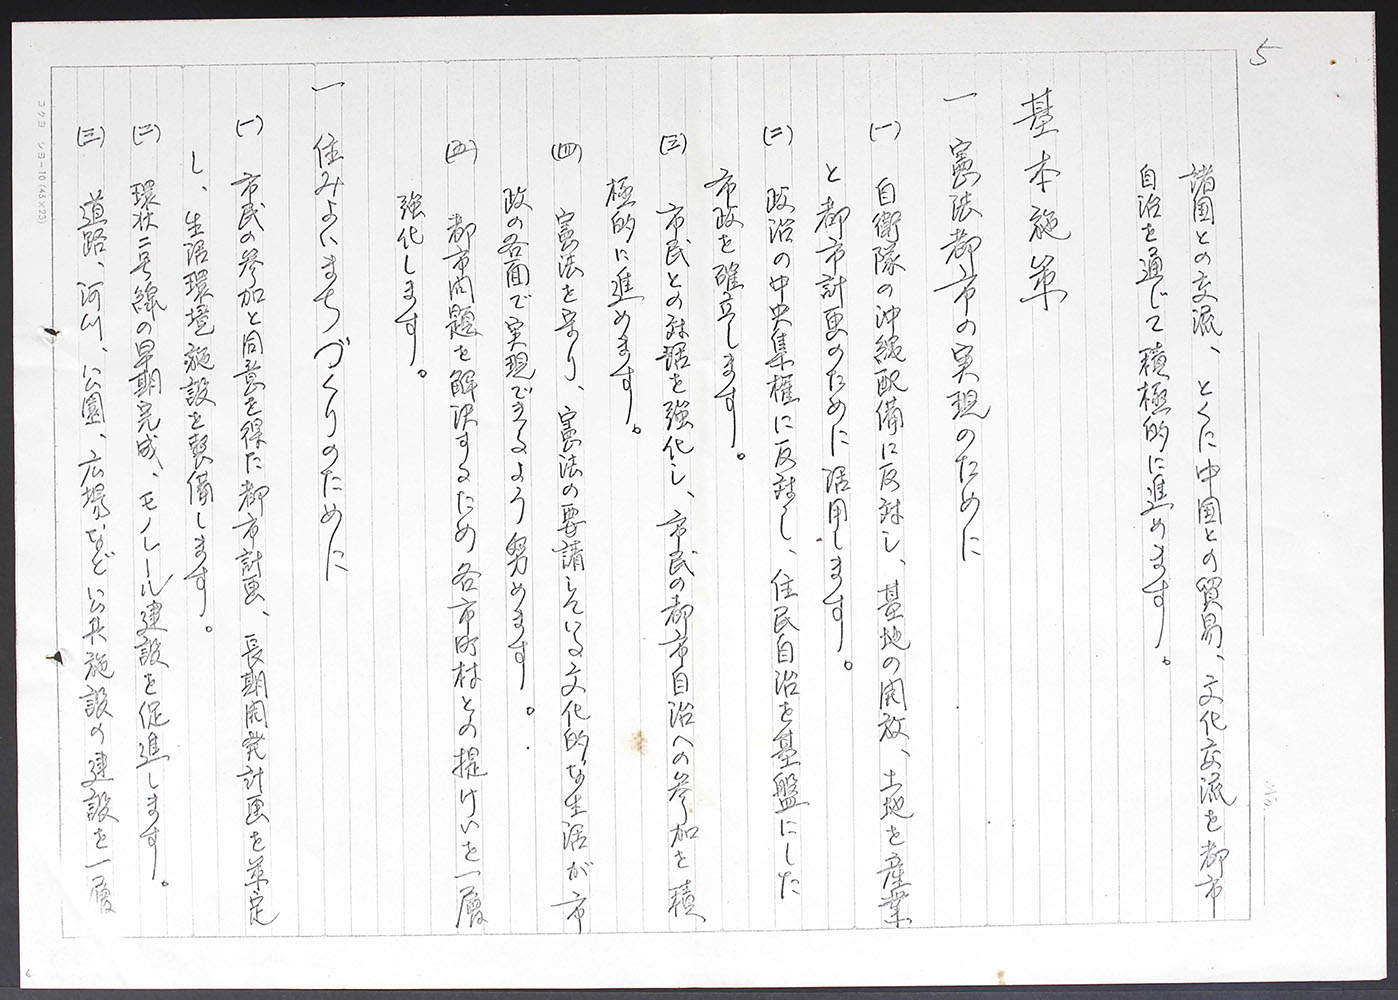 5
諸国との交流、とくに中国との貿易、文化交流を都市
自治を通じて積極的に進めます。
基本施策
一 憲法都市の実現のために
(一) 自衛隊の沖縄配備に反対し、基地の開放、土地を産業
と都市計画のために活用します。
(二) 政治の中央集権に反対し、住民自治を基盤にした
市政を確立します。
(三) 市民との対話を強化し、市民の都市自治への参加を積
極的に進めます。
(四) 憲法を守り、憲法の要請している文化的な生活が市
政の各面で実現できるよう努めます。
(五) 都市問題を解決するため各市町村との提けいを一層
強化します。
一 住みよいまちづくりのために
(一) 市民の参加と同意を得た都市計画、長期開発計画を策定
し、生活環境施設を整備します。
(二) 環状二号線の早期完成、モノレール建設を促進します。
(三) 道路、河川、公園、広場など公共施設の建設を一層
コクヨ シヨー10(43×23)
6